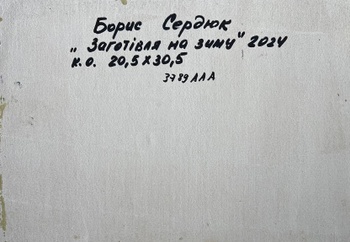 Борис Сердюк
„Заготівля на зиму" 2024
к.о. 20,5х30,5
3789ААА